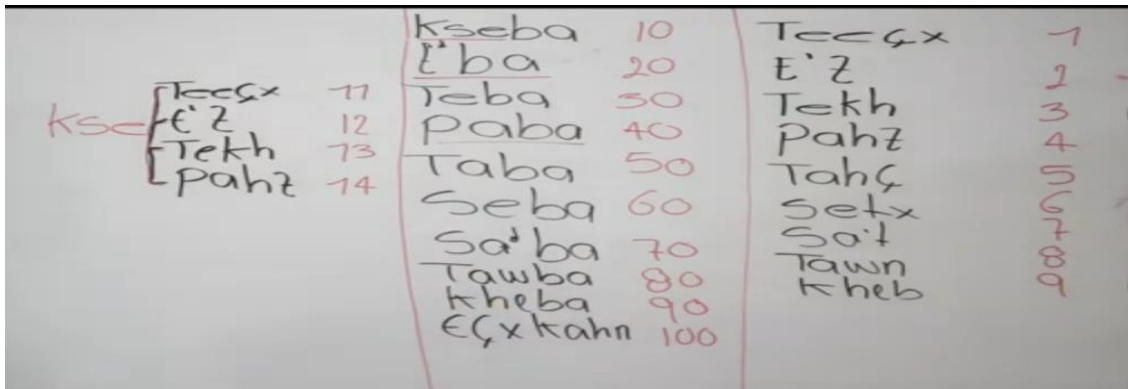 kse
Teeçx 11
E'Z 12
Tekh 13
pahz 14
kseba 10
E'ba 20
Teba 30
Paba 40
Taba 50
Seba 60
Sa'ba 70
Tawba 80
kheba 90
Eçxkahn 100
Teeçx 1
E'Z 2
Tekh 3
Pahz 4
Tahç 5
Setx 6
Sa't 7
Tawn 8
kheb 9